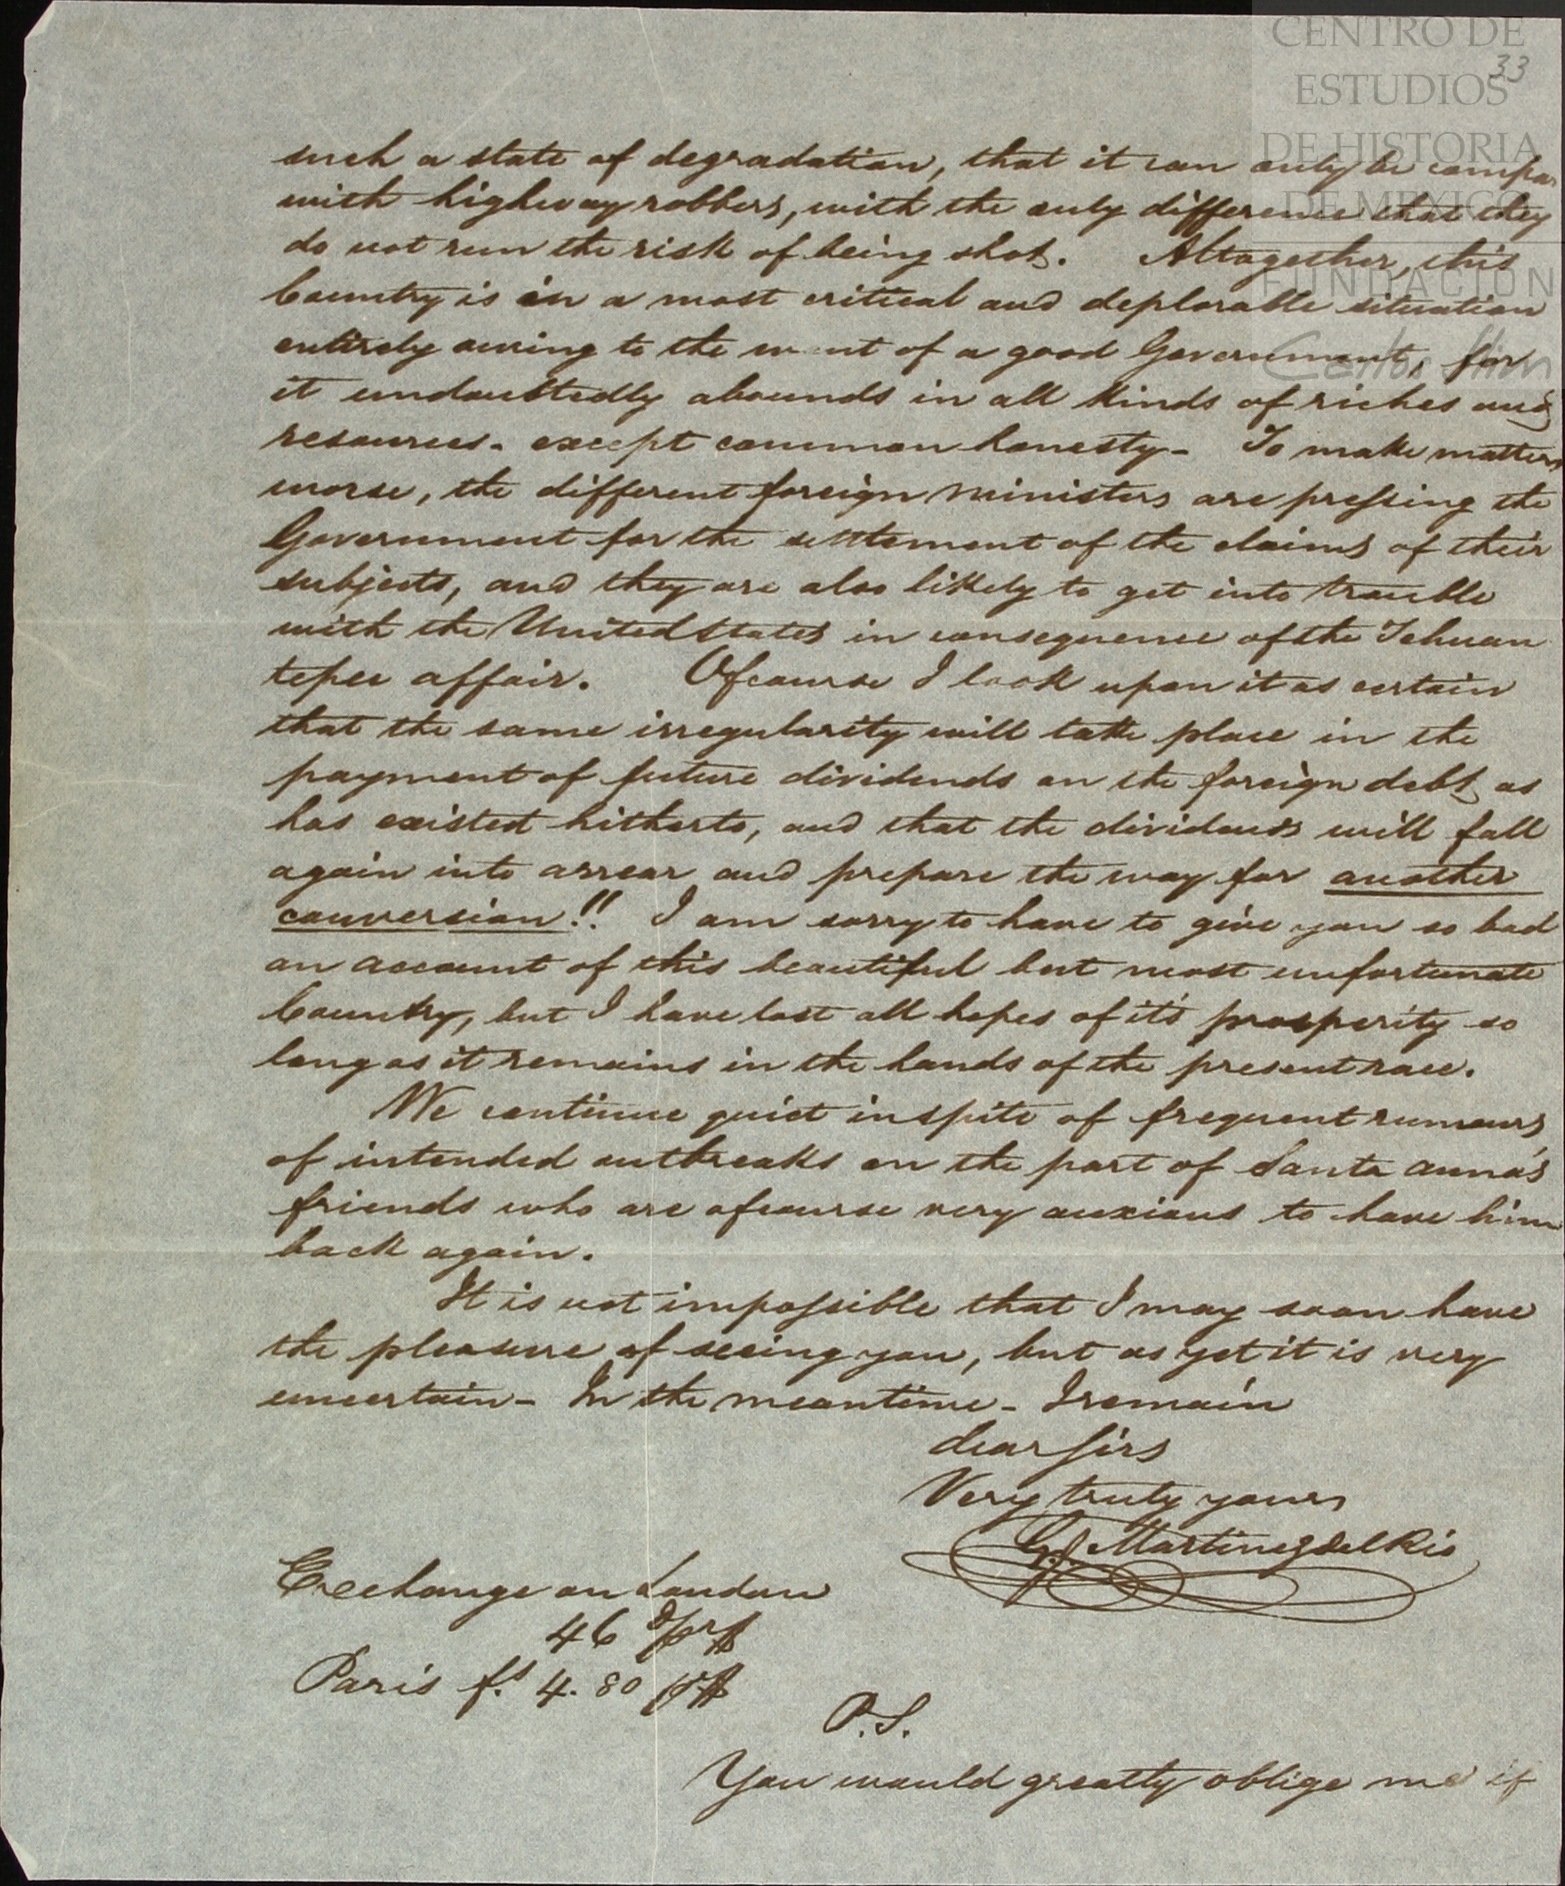 CENTRO DE
33
ESTUDIOS
DE HISTORIA
DE MEXICO
FUNDACIÓN
Carlos Slim
such a state of degradation, that it can only be compar
with highway robbers, with the only difference that they
do not run the risk of being shot. Altogether, this
Country is in a most critical and deplorable situation
entirely owing to the want of a good Government, for
it undoubtedly abounds in all kinds of riches and
resources - except common honesty - To make matters
worse, the different foreign Ministers are pressing the
Government for the settlement of the claims of their
subjects, and they are also likely to get into trouble
with the United States in consequence of the Tehuan
tepec affair. Ofcourse I look upon it as certain
that the same irregularity will take place in the
payment of future dividends on the foreign debt, as
has existed hitherto, and that the dividends will fall
again into arrear and prepare the way for another
conversion!! I am sorry to have to give you so bad
an account of this beautiful but most unfortunate
Country, but I have lost all hopes of it's prosperity so
long as it remains in the hands of the present race.
We continue quiet inspite of frequent rumours
of intended outbreaks on the part of Santa Anna's
friends who are ofcourse very anxious to have him
back again.
It is not impossible that I may soon have
the pleasure of seeing you, but as yet it is very
uncertain - In the meantime - I remain
dear Sirs
Very truly yours
G. Martinez del Rio
Exchange on London
46 d pr $
Paris fs. 4.80 pr $
P.S.
You would greatly oblige me if